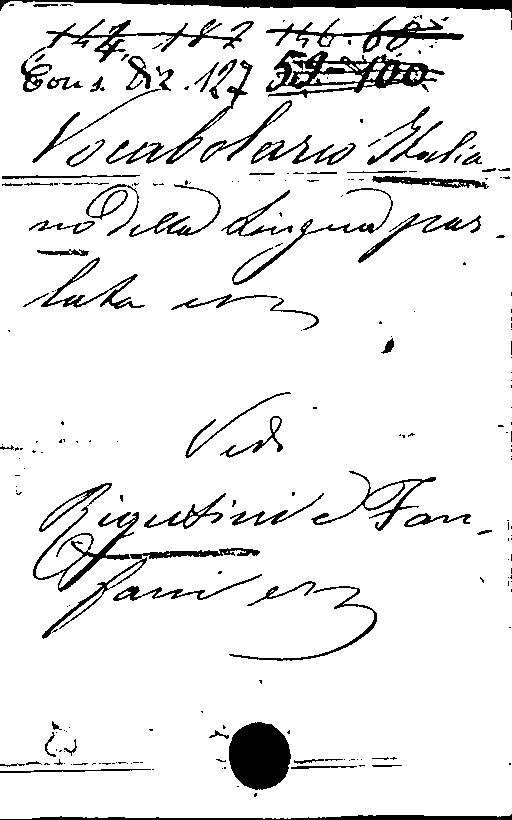 147. 187 146. 68
Cons. Diz. 127 59-100
Vocabolario Italia-
no della Lingua par-
lata ecc
Vedi
Rigutini e Fan-
fani ecc